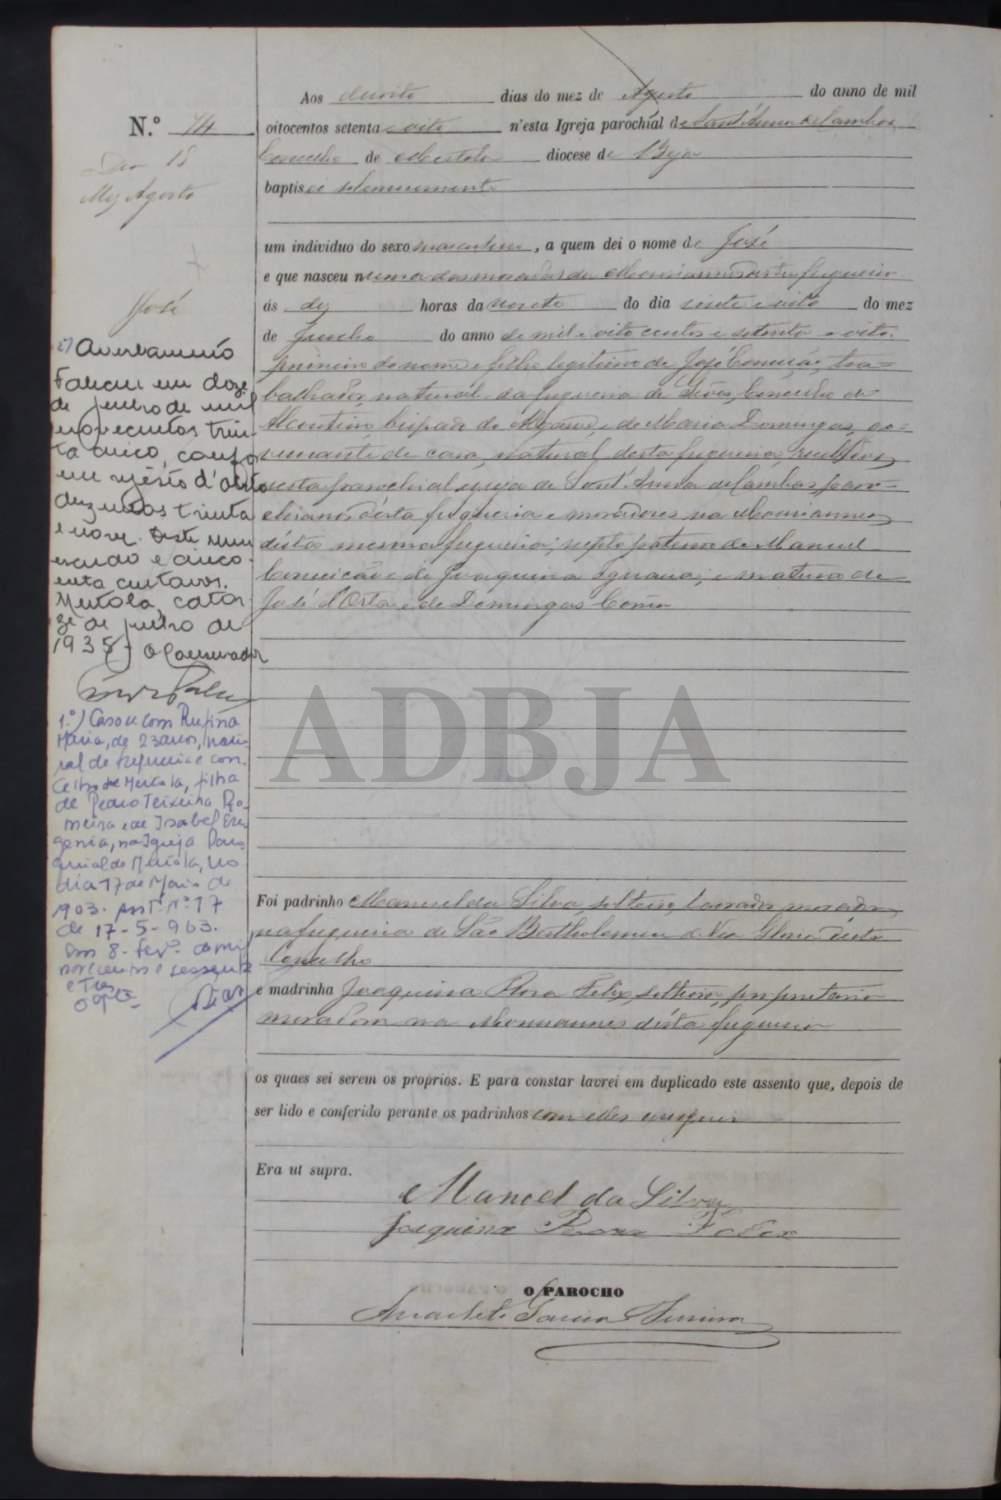 Aos dezoito dias do mez de Agosto do anno de mil
N.º 74
oitocentos setenta e oito n'esta Igreja parochial de Sant'Anna de Cambas
Concelho de Mertola diocese de Beja
baptisei solemnemente
Dia 18
Mez Agosto
José
um individuo do sexo masculino, a quem dei o nome de José
e que nasceu n'uma das moradas da desta freguezia
ás dez horas da noute do dia vinte e oito do mez
de Junho do anno de mil e oito centos e setenta e oito,
primeiro do nome e filho legitimo de José Conceição, tra=
balhador, natural da freguezia de Concelho de
Alcoutim bispado do Algarve, e de Maria Domingas, go=
vernante de casa, natural desta freguezia recebidos
nesta parochial egreja de Sant'Anna de Cambas paro=
chianos d'esta freguezia e moradores na
d'esta mesma freguezia; neto paterno de Manuel
Conceição e de Joaquina Ignacia; e materno de
José d'Orta e de Domingas
2º) Averbamento
Faleceu em doze
de junho de mil
novecentos trin-
ta cinco, confor
me registo d'obito
duzentos trinta
e nove. Deste um
escudo e cinco-
enta centavos.
Mertola, cator
ze de junho de
1935. O Conservador
1.º) Casou com Rufina
Maria, de 23 anos, natu-
ral de freguesia e con-
celho de Mertola, filha
de Pedro Teixeira Ro-
meira e de Isabel Eu
genia, na Igreja Paro
quial de Mertola, no
dia 17 de Maio de
1903. Ass. nº 17
de 17-5-903.
Em 8. fevº. de mil
novecentos e sessenta
e tres
ADBJA
Foi padrinho Manuel da Silva solteiro, lavrador, morador
na freguezia de São Bartholomeu de Via Gloria d'este
Concelho
e madrinha Joaquina Rosa Felix solteira, proprietaria
moradora na d'esta freguezia
os quaes sei serem os proprios. E para constar lavrei em duplicado este assento que, depois de
ser lido e conferido perante os padrinhos com elles assignei
Era ut supra.
Manoel da Silva
Joaquina Rosa Felix
O PAROCHO